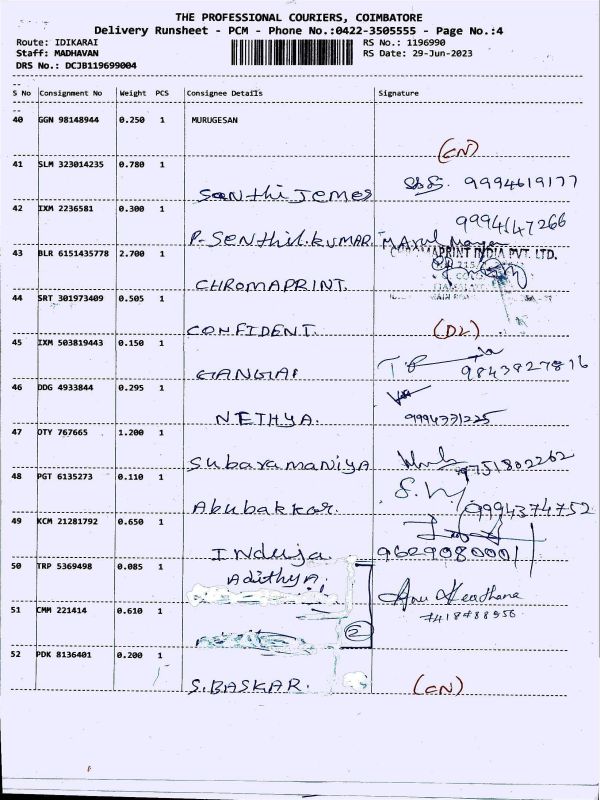 THE PROFESSIONAL COURIERS, COIMBATORE
Delivery Runsheet - PCM - Phone No.:0422-3505555 - Page No.:4
Route: IDIKARAI RS No.: 1196990
Staff: MADHAVAN RS Date: 29-Jun-2023
DRS No.: DCJB119699004
S No Consignment No Weight PCS Consignee Details Signature
40 GGN 98148944 0.250 1 MURUGESAN
(CN)
41 SLM 323014235 0.780 1
Santhi Jemes 9994619177
42 IXM 2236581 0.300 1
9994147266
P-Senthil.kumar
43 BLR 6151435778 2.700 1 CHROMAPRINT INDIA PVT. LTD.
CHROMAPRINT.
44 SRT 301973409 0.505 1
CONFIDENT. (DL)
45 IXM 503819443 0.150 1
GANGAI 9843827816
46 DDG 4933844 0.295 1
NETHYA. 9994331225
47 OTY 767665 1.200 1
Subaramaniya 9751802262
48 PGT 6135273 0.110 1
Abubakkar. 9994374752
49 KCM 21281792 0.650 1
Induja 9629080001
50 TRP 5369498 0.085 1
Adithya,
51 CMM 221414 0.610 1
2
52 PDK 8136401 0.200 1
S.BASKAR. (CN)